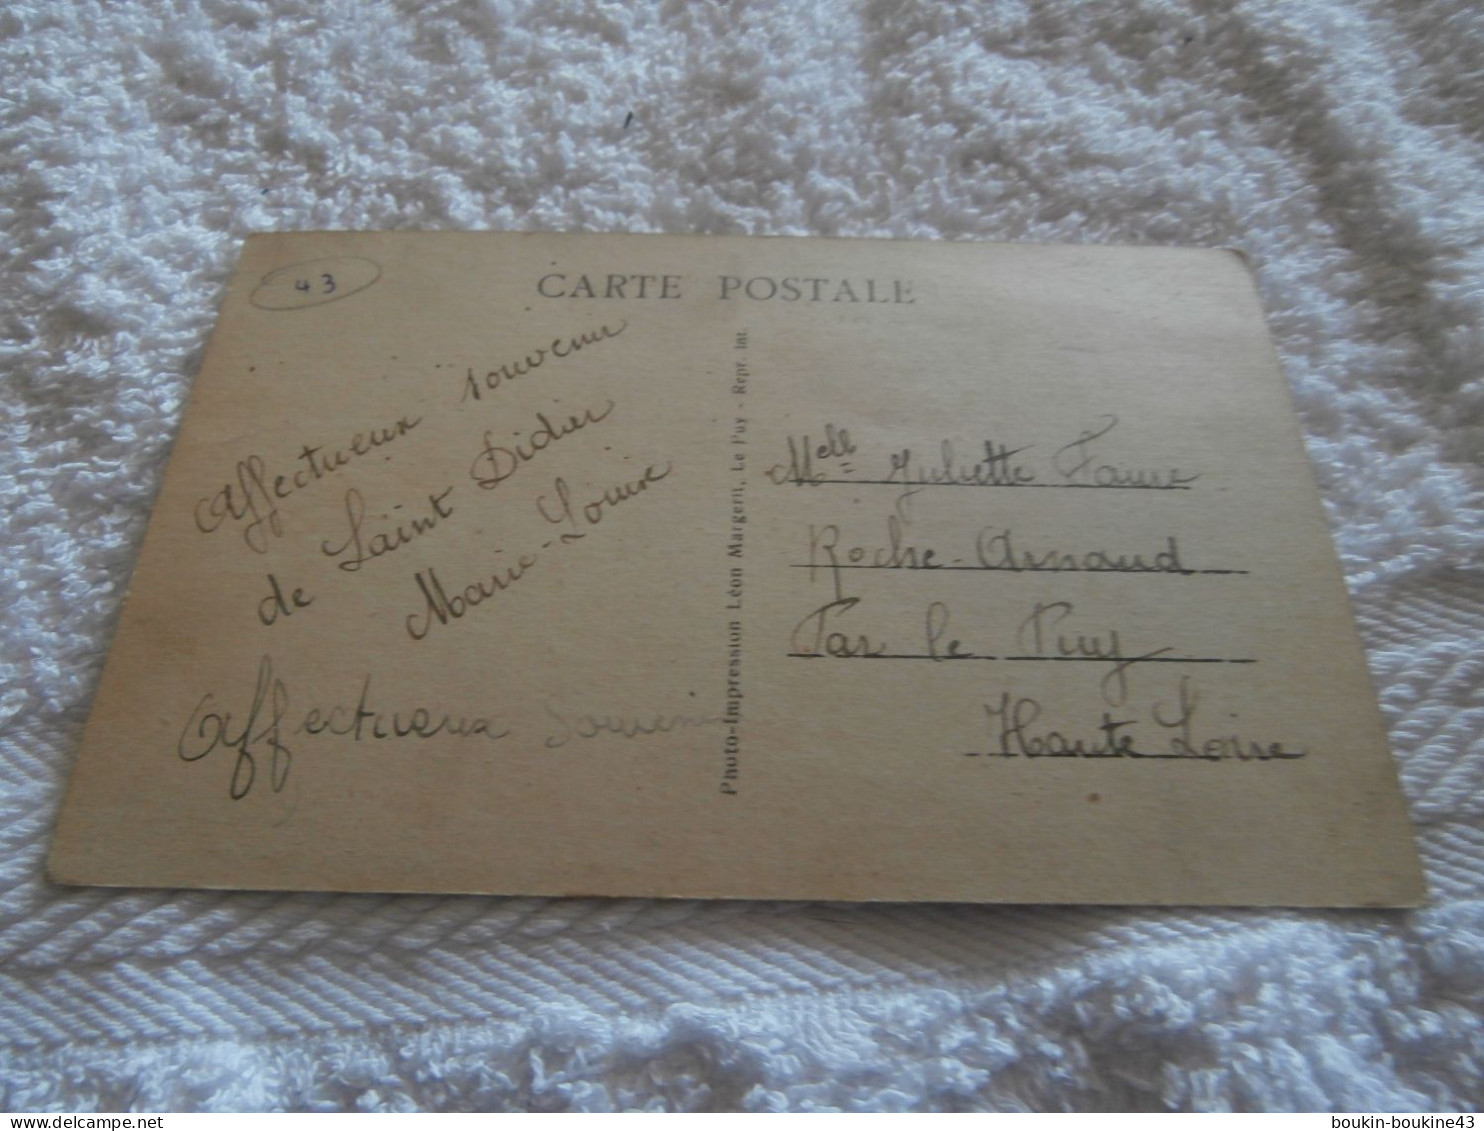 43
CARTE POSTALE
Affectueux souvenir
de Saint Didier
Marie-Louise
Affectueux Souveni
Photo-Impression Léon Margerit, Le Puy - Repr. int.
Melle Juliette Faure
Roche-Arnaud
Par le Puy
Haute Loire
boukin-boukine43